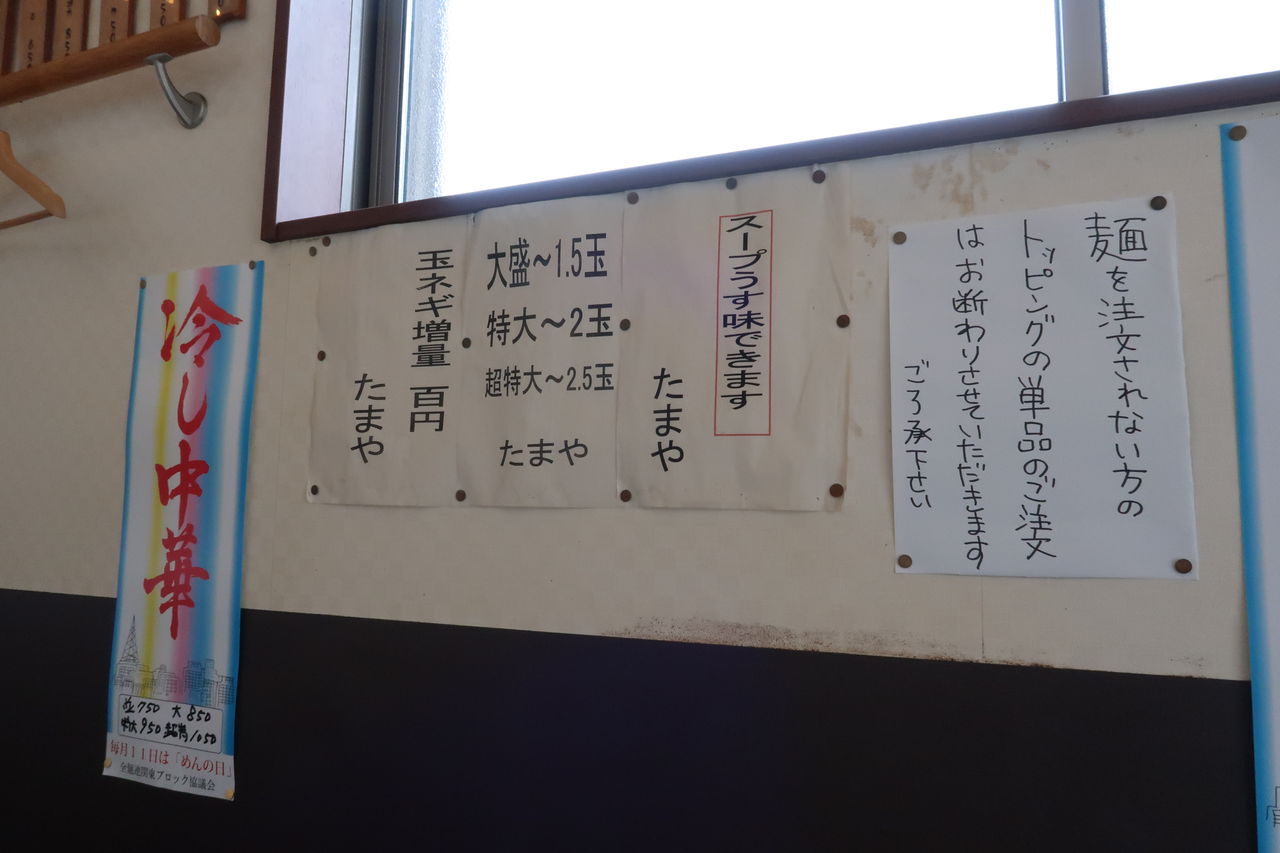 麺を注文されない方の
トッピングの単品のご注文
はお断わりさせていただきます
ごろ承下さい
スープうす味できます
たまや
大盛～1.5玉
特大～2玉
超特大～2.5玉
たまや
玉ネギ増量 百円
たまや
冷し中華
並750 大850
特大950 超特1050
毎月11日は「めんの日」
全麺連関東ブロック協議会